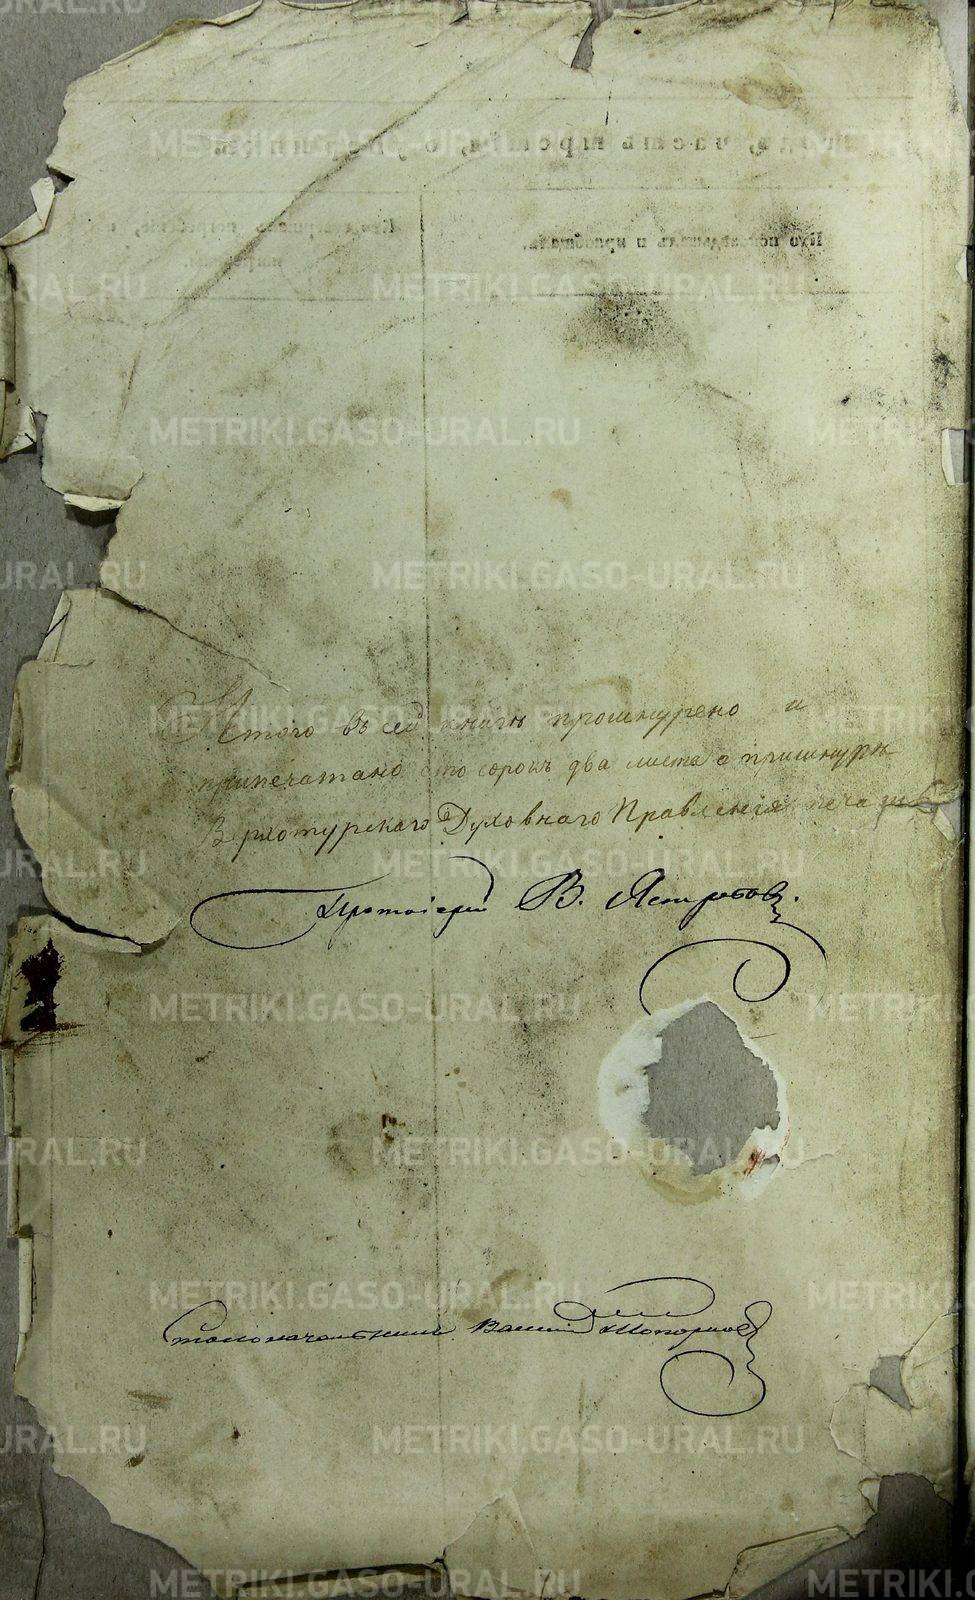 METRIKI.GASO-URAL.RU
Кто исповѣдывалъ и пріобщалъ.
Итого въ сей книгѣ прошнурено и
припечатано сто сорокъ два листа о пришнурѣ
Верхотурскаго Духовнаго Правленія печа
Протоіерей В. Ястребовъ.
Столоначальникъ Василій Топорковъ